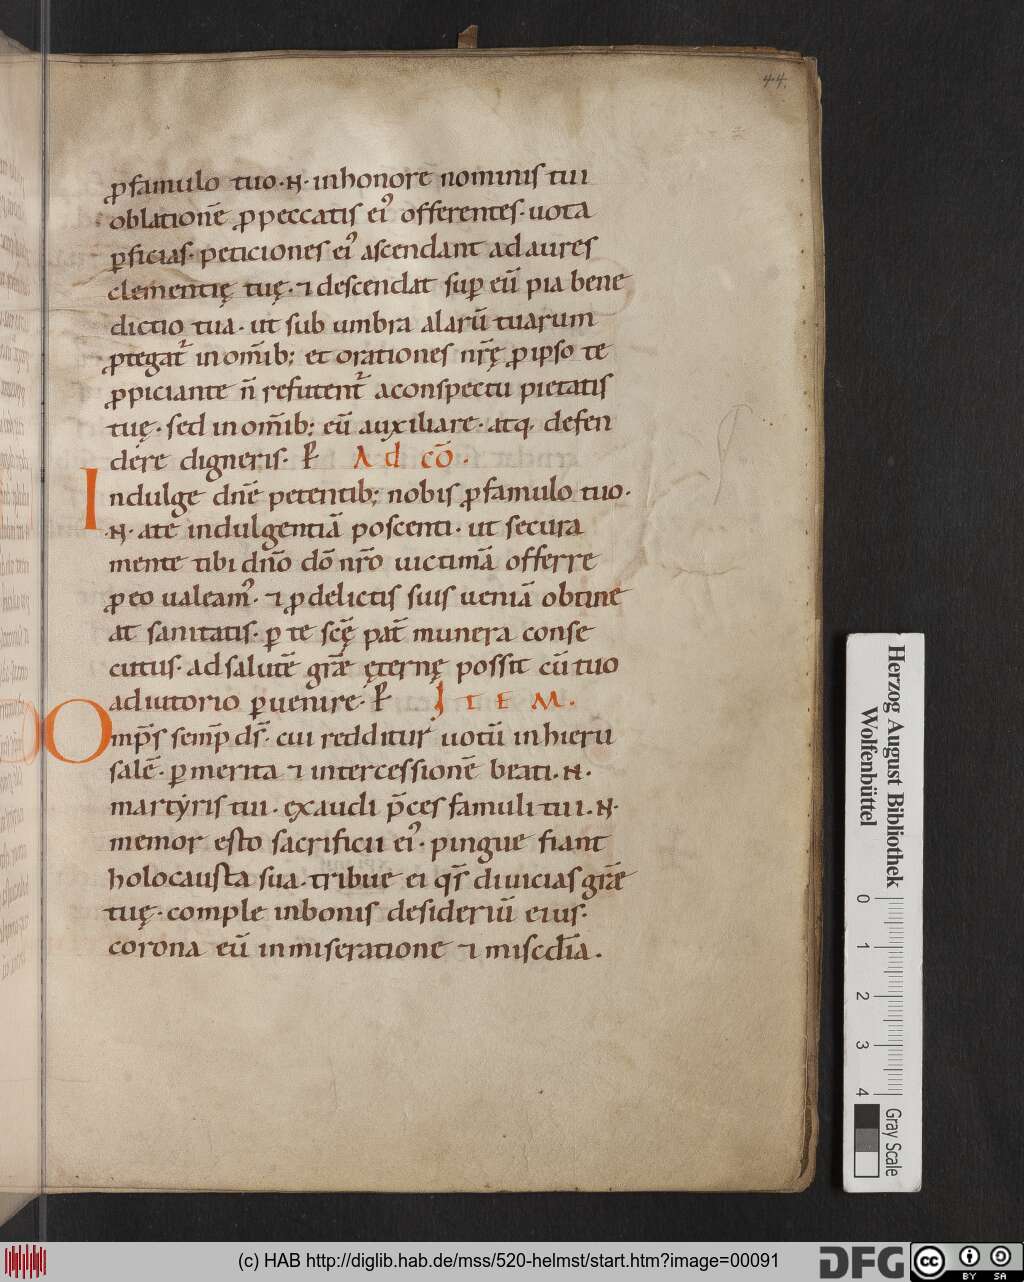 44.
ꝓfamulo tuo·N·inhonore nominis tui
oblationē ꝓpeccatis ei᾽ offerentes·uota
ꝑficias·peticiones ei᾽ ascendant adaures
clementię tuę·⁊descendat suꝑ eū pia bene
dictio tua·ut sub umbra alarū tuarum
ꝓtegat᷑ inom̄ib; et orationes nr̄ę ꝓipso te
ꝓpiciante n̄ refutent᷑ aconspectu pietatis
tuę·sed inom̄ib; eū auxiliare·atq; defen
dere digneris· ꝑ Ad cō·
Indulge dn̄e petentib; nobis ꝓfamulo tuo·
·N·ate indulgentiā poscenti·ut secura
mente tibi dn̄o dō nr̄o uictimā offerre
ꝓeo ualeam᾽·⁊ ꝓdelictis suis ueniā obtine
at sanitatis·ꝑ te sc̄ę pat̄ munera conse
cutus·adsalutē grāe ęternę possit cū tuo
adiutorio ꝑuenire·ꝑ ITEM.
Omp̄s semp̄ ds̄·cui redditur uotū inhieru
salē·ꝑmerita ⁊ intercessionē beati·N·
martyris tui·exaudi p̄ces famuli tui·N·
memor esto sacrificii ei᾽·pingue fiant
holocausta sua·tribue ei qs̄ diuicias grāe
tuę·comple inbonis desideriū eius·
corona eū inmiseratione ⁊ miscdīa.
Herzog August Bibliothek
Wolfenbüttel
0 1 2 3 4
Gray Scale
(c) HAB http://diglib.hab.de/mss/520-helmst/start.htm?image=00091
DFG
cc
BY SA